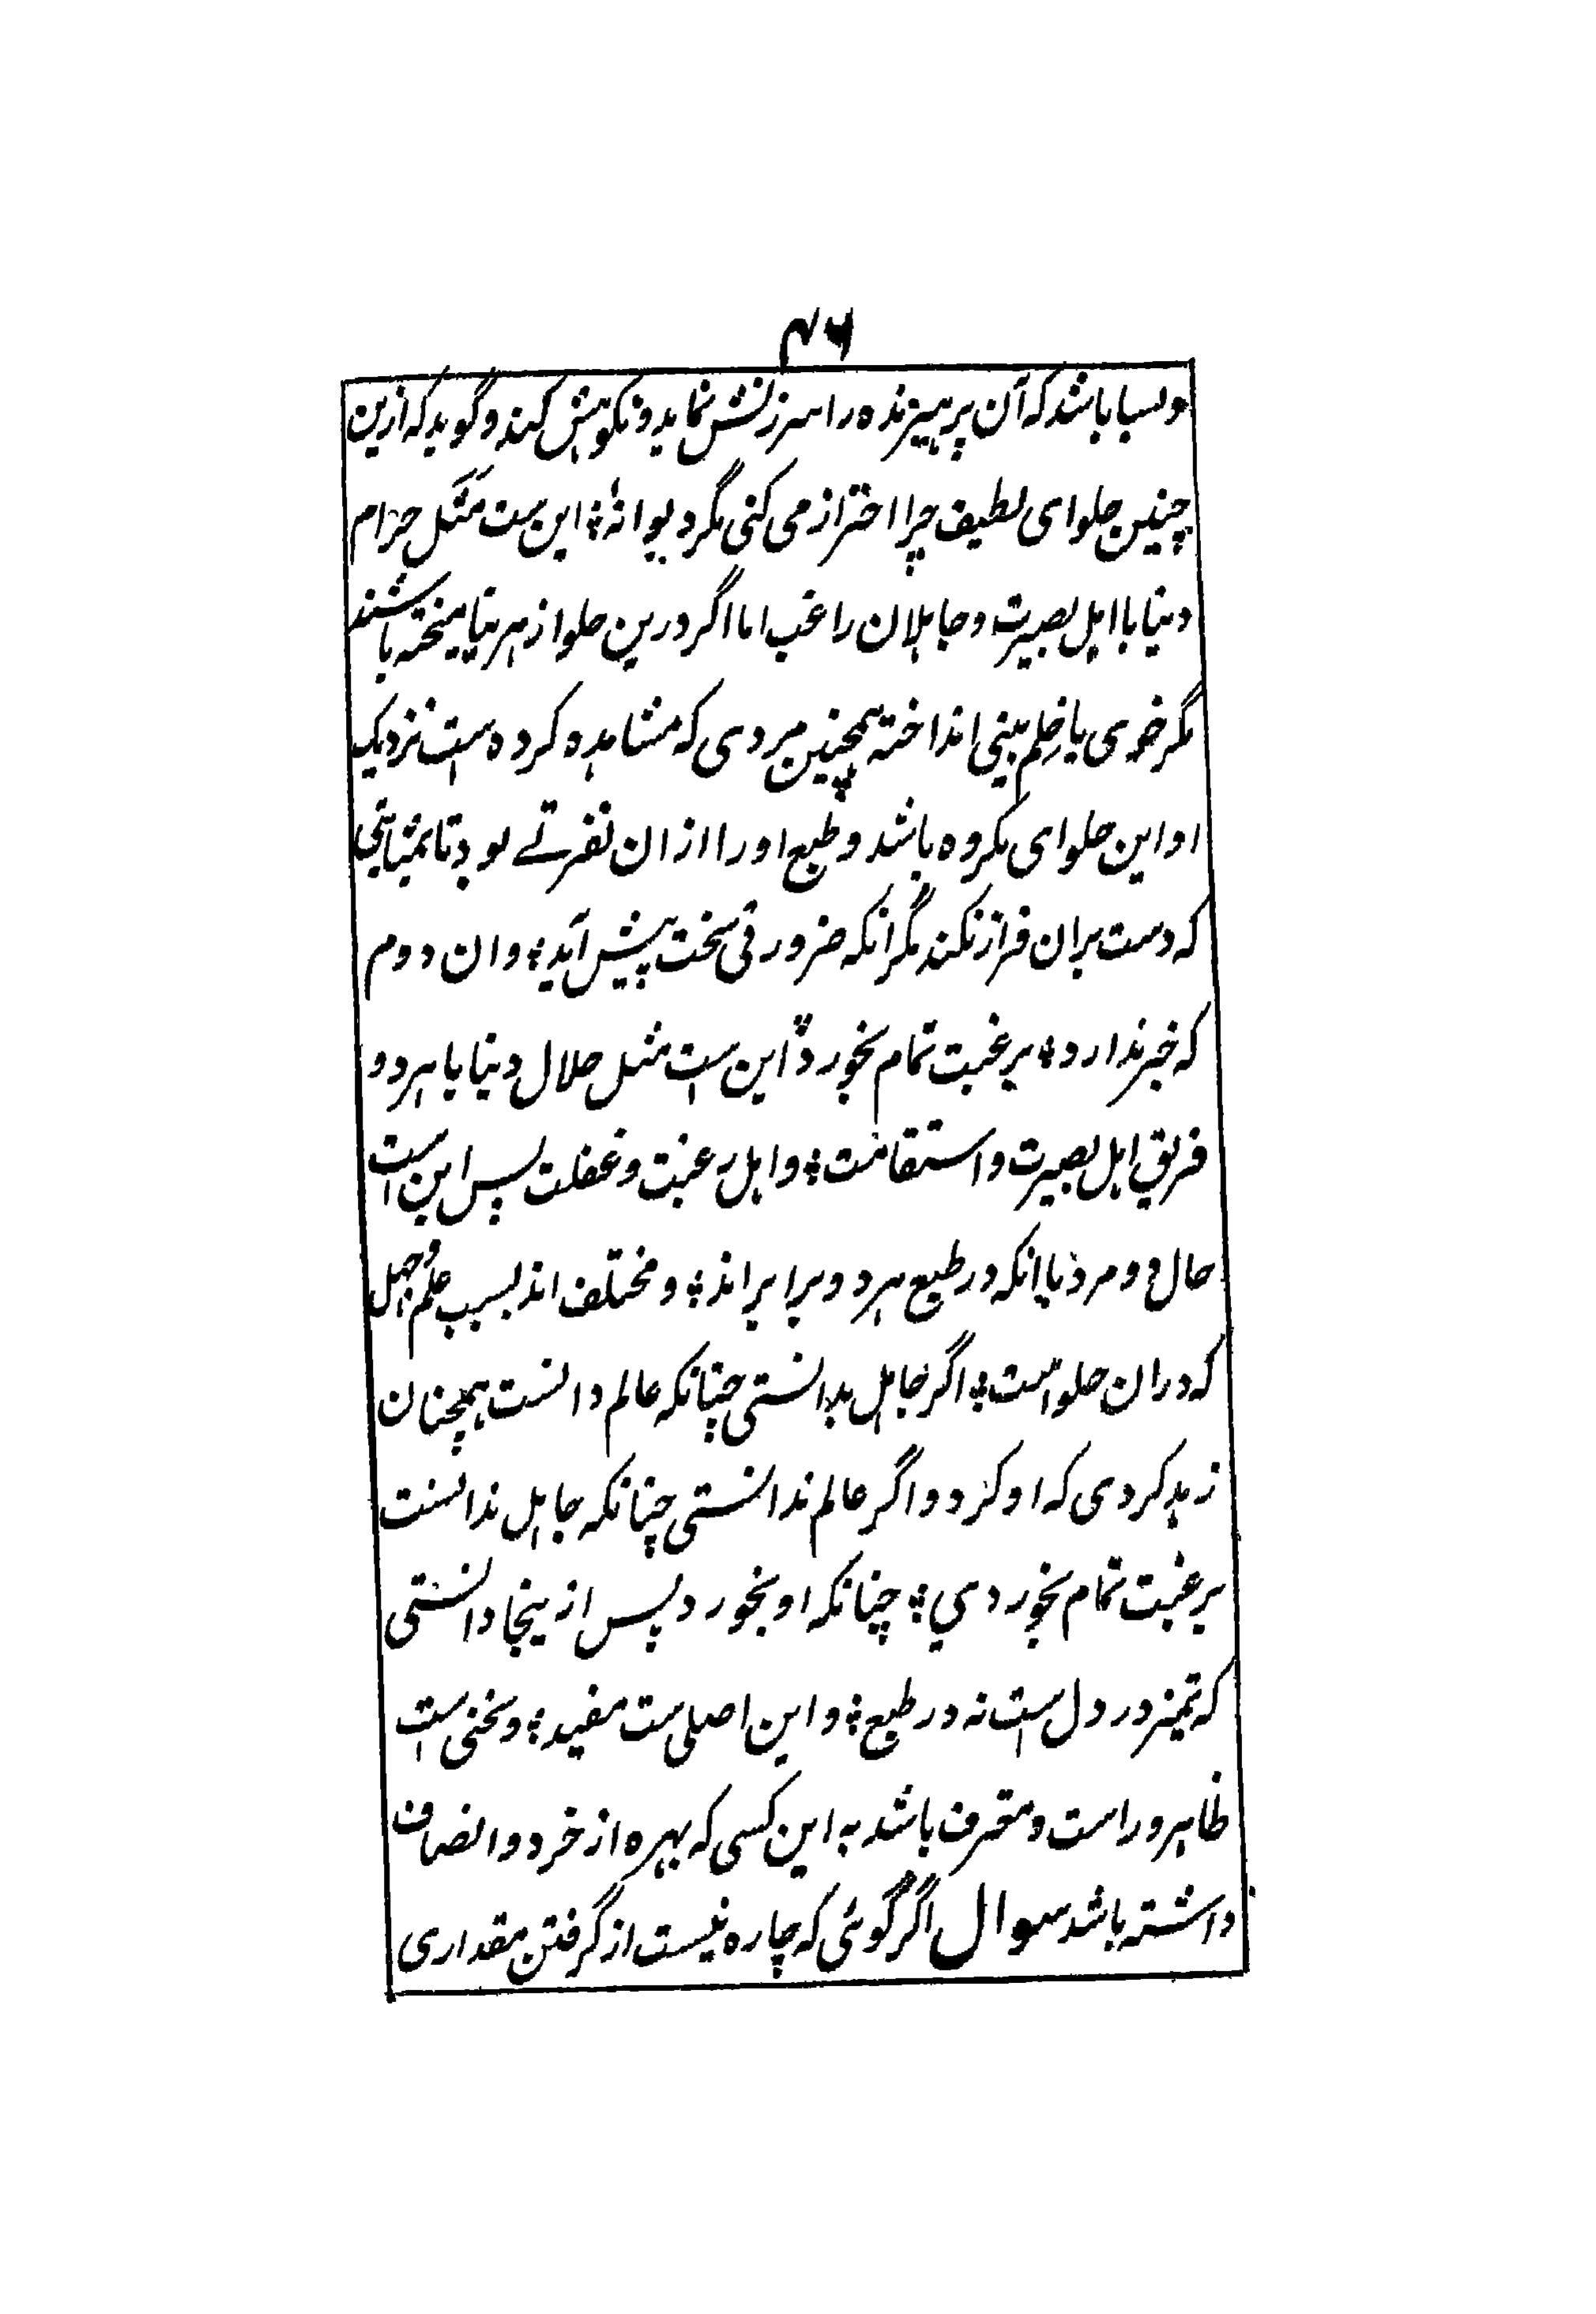 ۴۶
وبسا باشد که آن پرهیزنده را سرزنش نماید و نکوهش کند و گوید که ازین
چنین حلوای لطیف چرا احتراز می کنی مگر دیوانهٔ؛ این ست مَثَل حرام
دنیا با اهل بصیرت و جاهلان راغب اما اگر درین حلوا زهر نیامیخته باشند
مگر خوی یا خِلم بینی انداخته همچنین مردی که مشاهده کرده ست نزدیک
او این حلوای مکروه باشد و طبع او را از ان نفرتے بود تا بمثابتی
که دست بران فراز نکند مگر انکه ضرورتی سخت پیش آید؛ و ان دوم
که خبر ندارد؛ برغبت تمام بخورد؛ این ست مثل حلال دنیا با هر دو
فریق اهل بصیرت و استقامت؛ و اهل رغبت و غفلت پس این است
حال دو مرد با انکه در طبع هر دو برابر اند؛ و مختلف اند بسبب علم و جهل
که دران حلواست؛ اگر جاهل بدانستی چنانکه عالم دانست همچنان
زهد کردی که او کرد و اگر عالم ندانستی چنانکه جاهل ندانست
برغبت تمام بخوردی؛ چنانکه او بخورد پس از ینجا دانستی
که تمیز در دل است نه در طبع؛ و این اصلی ست مفید؛ و سخنی است
ظاهر و راست و معترف باشد به این کسی که بهره از خرد و انصاف
داشته باشد سوال اگر گوئی که چاره نیست از گرفتن مقداری